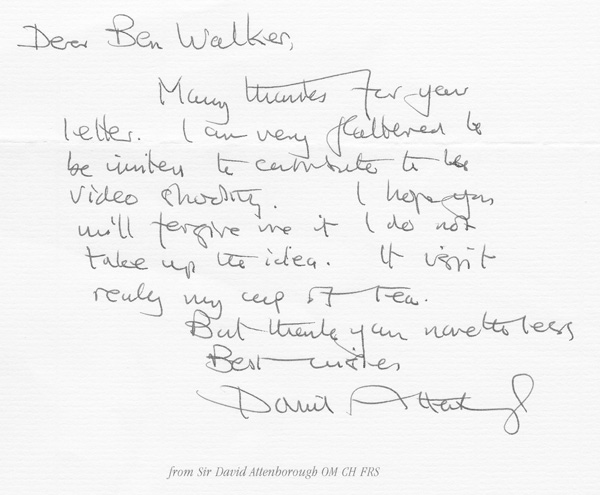 Dear Ben Walker,
Many thanks for your
letter. I am very flattered to
be invited to contribute to the
video
I hope you
will forgive me if I do not
take up the idea. It isn't
really my cup of tea.
But thank you nonetheless
Best wishes
David Attenborough
from Sir David Attenborough OM CH FRS